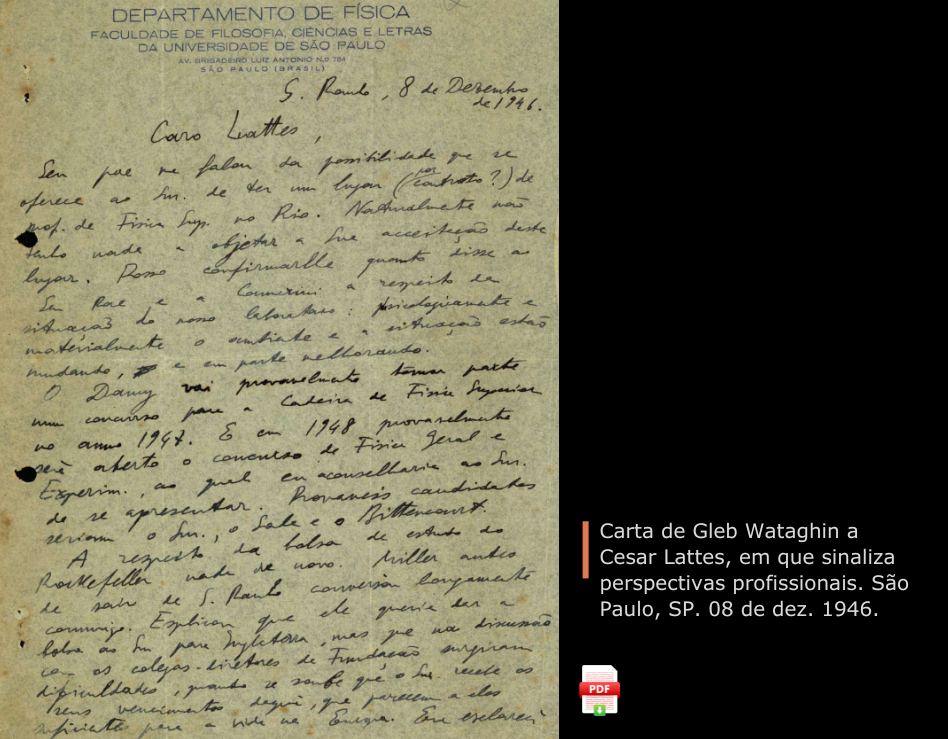 DEPARTAMENTO DE FÍSICA
FACULDADE DE FILOSOFIA, CIÊNCIAS E LETRAS
DA UNIVERSIDADE DE SÃO PAULO
AV. BRIGADEIRO LUIZ ANTONIO N.º 784
SÃO PAULO (BRASIL)
S. Paulo, 8 de Dezembro
de 1946.
Caro Lattes,
Seu pae me falou da possibilidade que se
oferece ao Snr. de ter um lugar (por contrato?) de
prof. de Fisica Sup. no Rio. Naturalmente não
tenho nada a objetar a Sua acceitação deste
lugar. Posso confirmarlhe quanto disse ao
Seu Pae e a a respeito da
situação do nosso laboratorio: psicologicamente e
materialmente o ambiente e a situação estão
mudando, e em parte melhorando.
O Damy vai provavelmente tomar parte
num concurso para a Cadeira de Fisica Superior
no anno 1947. E em 1948 provavelmente
será aberto o concurso de Fisica Geral e
Experim., ao qual eu aconselharia ao Snr.
de se apresentar. Provaveis candidatos
seriam o Snr., o Sala e o Bittencourt.
A respeito da bolsa de estudo do
Rockfeller nada de novo. Miller antes
de sair de S. Paulo conversou longamente
commigo. Explicou que ele queria dar a
bolsa ao Snr para Inglaterra, mas que na discussão
com os colegas-diretores de Fundação surgiram
dificuldades, quando se soube que o Snr. recebe os
seus vencimentos daqui, que parecem a eles
suficientes para a vida na Europa. Eu esclareci
Carta de Gleb Wataghin a
Cesar Lattes, em que sinaliza
perspectivas profissionais. São
Paulo, SP. 08 de dez. 1946.
PDF